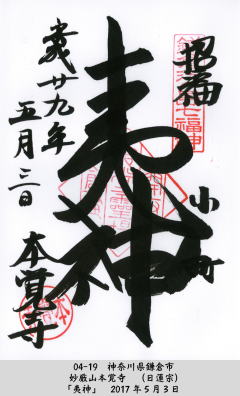 招福
鎌倉七福神
小町
夷神
平成廿九年
五月三日
本覚寺
04-19 神奈川県鎌倉市
妙厳山本覚寺 (日蓮宗)
「夷神」 2017年5月3日